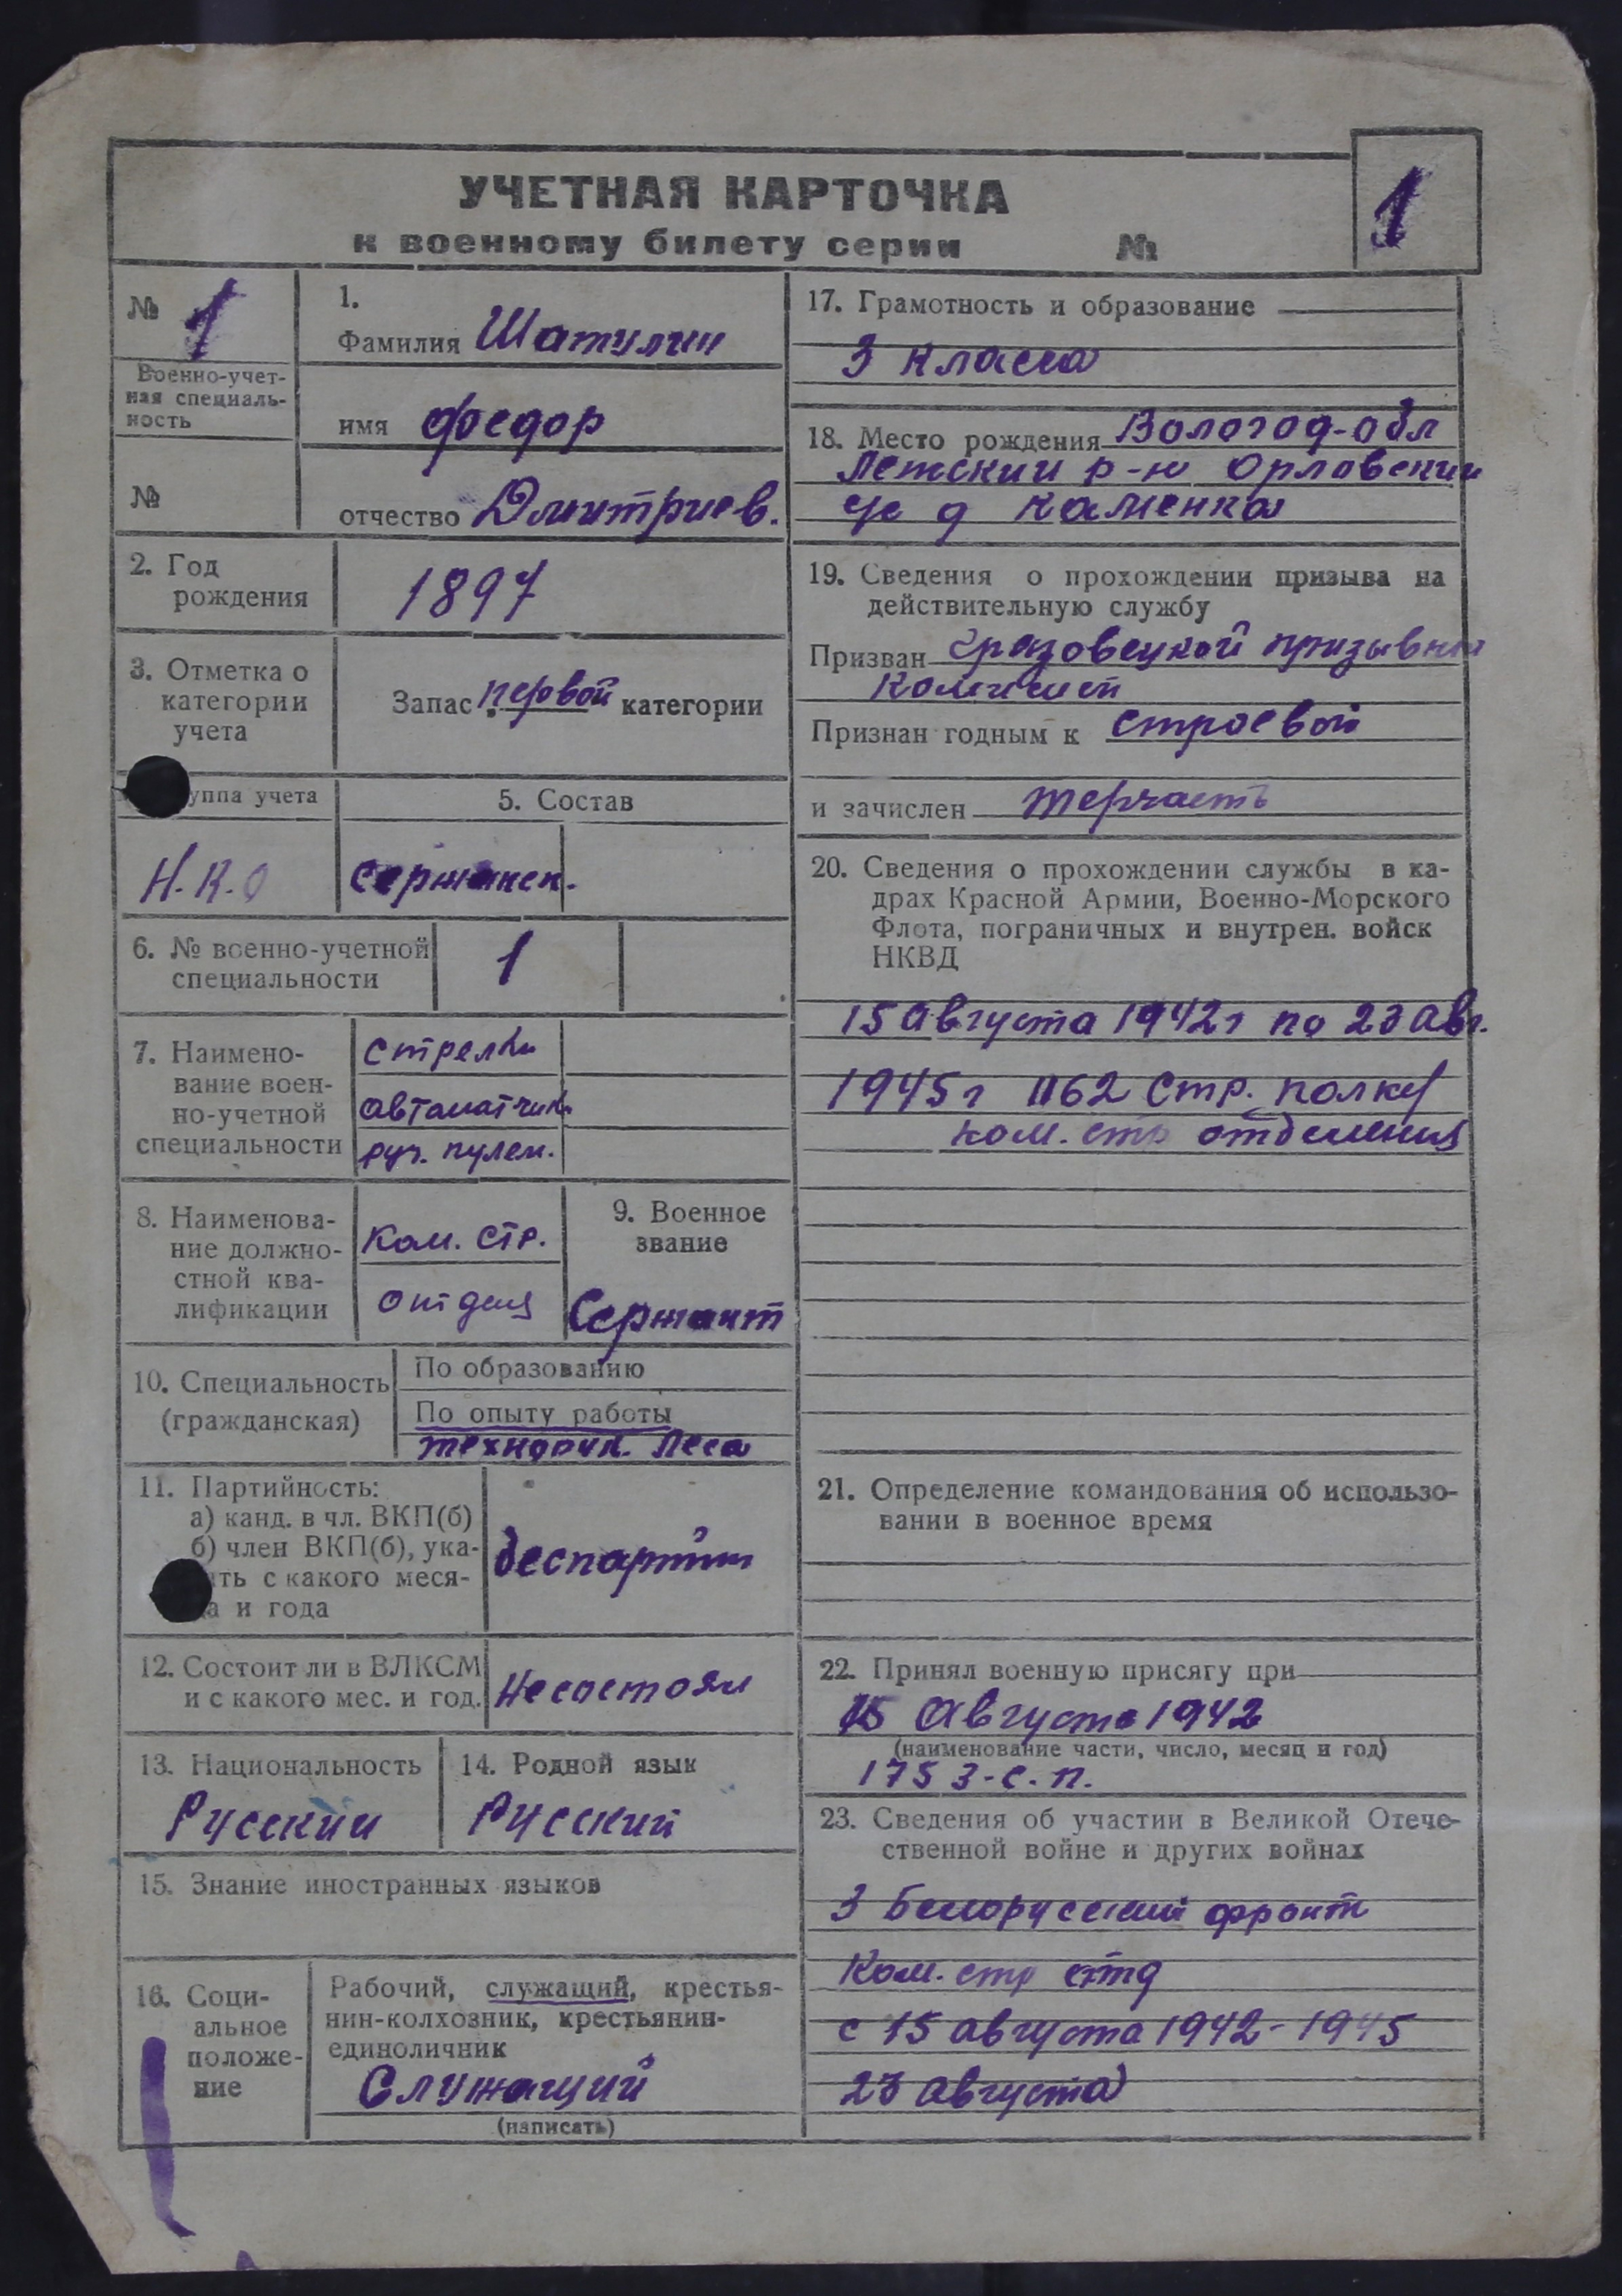 УЧЕТНАЯ КАРТОЧКА
к военному билету серии №
1
№ 1
Военно-учет-
ная специаль-
ность
№
1.
Фамилия Шатулин
имя Федор
отчество Дмитриев.
2. Год
рождения
1897
3. Отметка о
категории
учета
Запас первой категории
уппа учета
Н.К.О
5. Состав
сержанск.
6. № военно-учетной
специальности
1
7. Наимено-
вание воен-
но-учетной
специальности
стрелки
автоматчик.
руч. пулем.
8. Наименова-
ние должно-
стной ква-
лификации
Ком. стр.
отдел
9. Военное
звание
Сержант
10. Специальность
(гражданская)
По образованию
По опыту работы
технорук. леса
11. Партийность:
а) канд. в чл. ВКП(б)
б) член ВКП(б), ука-
ть с какого меся-
а и года
беспартийн
12. Состоит ли в ВЛКСМ
и с какого мес. и год.
Несостоял
13. Национальность
Русский
14. Родной язык
Русский
15. Знание иностранных языков
16. Соци-
альное
положе-
ние
Рабочий, служащий, крестья-
нин-колхозник, крестьянин-
единоличник
Служащий
(написать)
17. Грамотность и образование
3 класса
18. Место рождения Вологод-обл
р-н Орловский
с/с д Каменка
19. Сведения о прохождении призыва на
действительную службу
Призван Грязовецкой призывной
Комиссией
Признан годным к строевой
и зачислен терчасть
20. Сведения о прохождении службы в ка-
драх Красной Армии, Военно-Морского
Флота, пограничных и внутрен. войск
НКВД
15 августа 1942г по 23 авг.
1945г 1162 Стр. полку
ком. стр отделения
21. Определение командования об использо-
вании в военное время
22. Принял военную присягу при
15 Августа 1942
(наименование части, число, месяц и год)
175 з-с.п.
23. Сведения об участии в Великой Отече-
ственной войне и других войнах
3 Белорусский фронт
Ком. стр отд
с 15 августа 1942-1945
23 августа